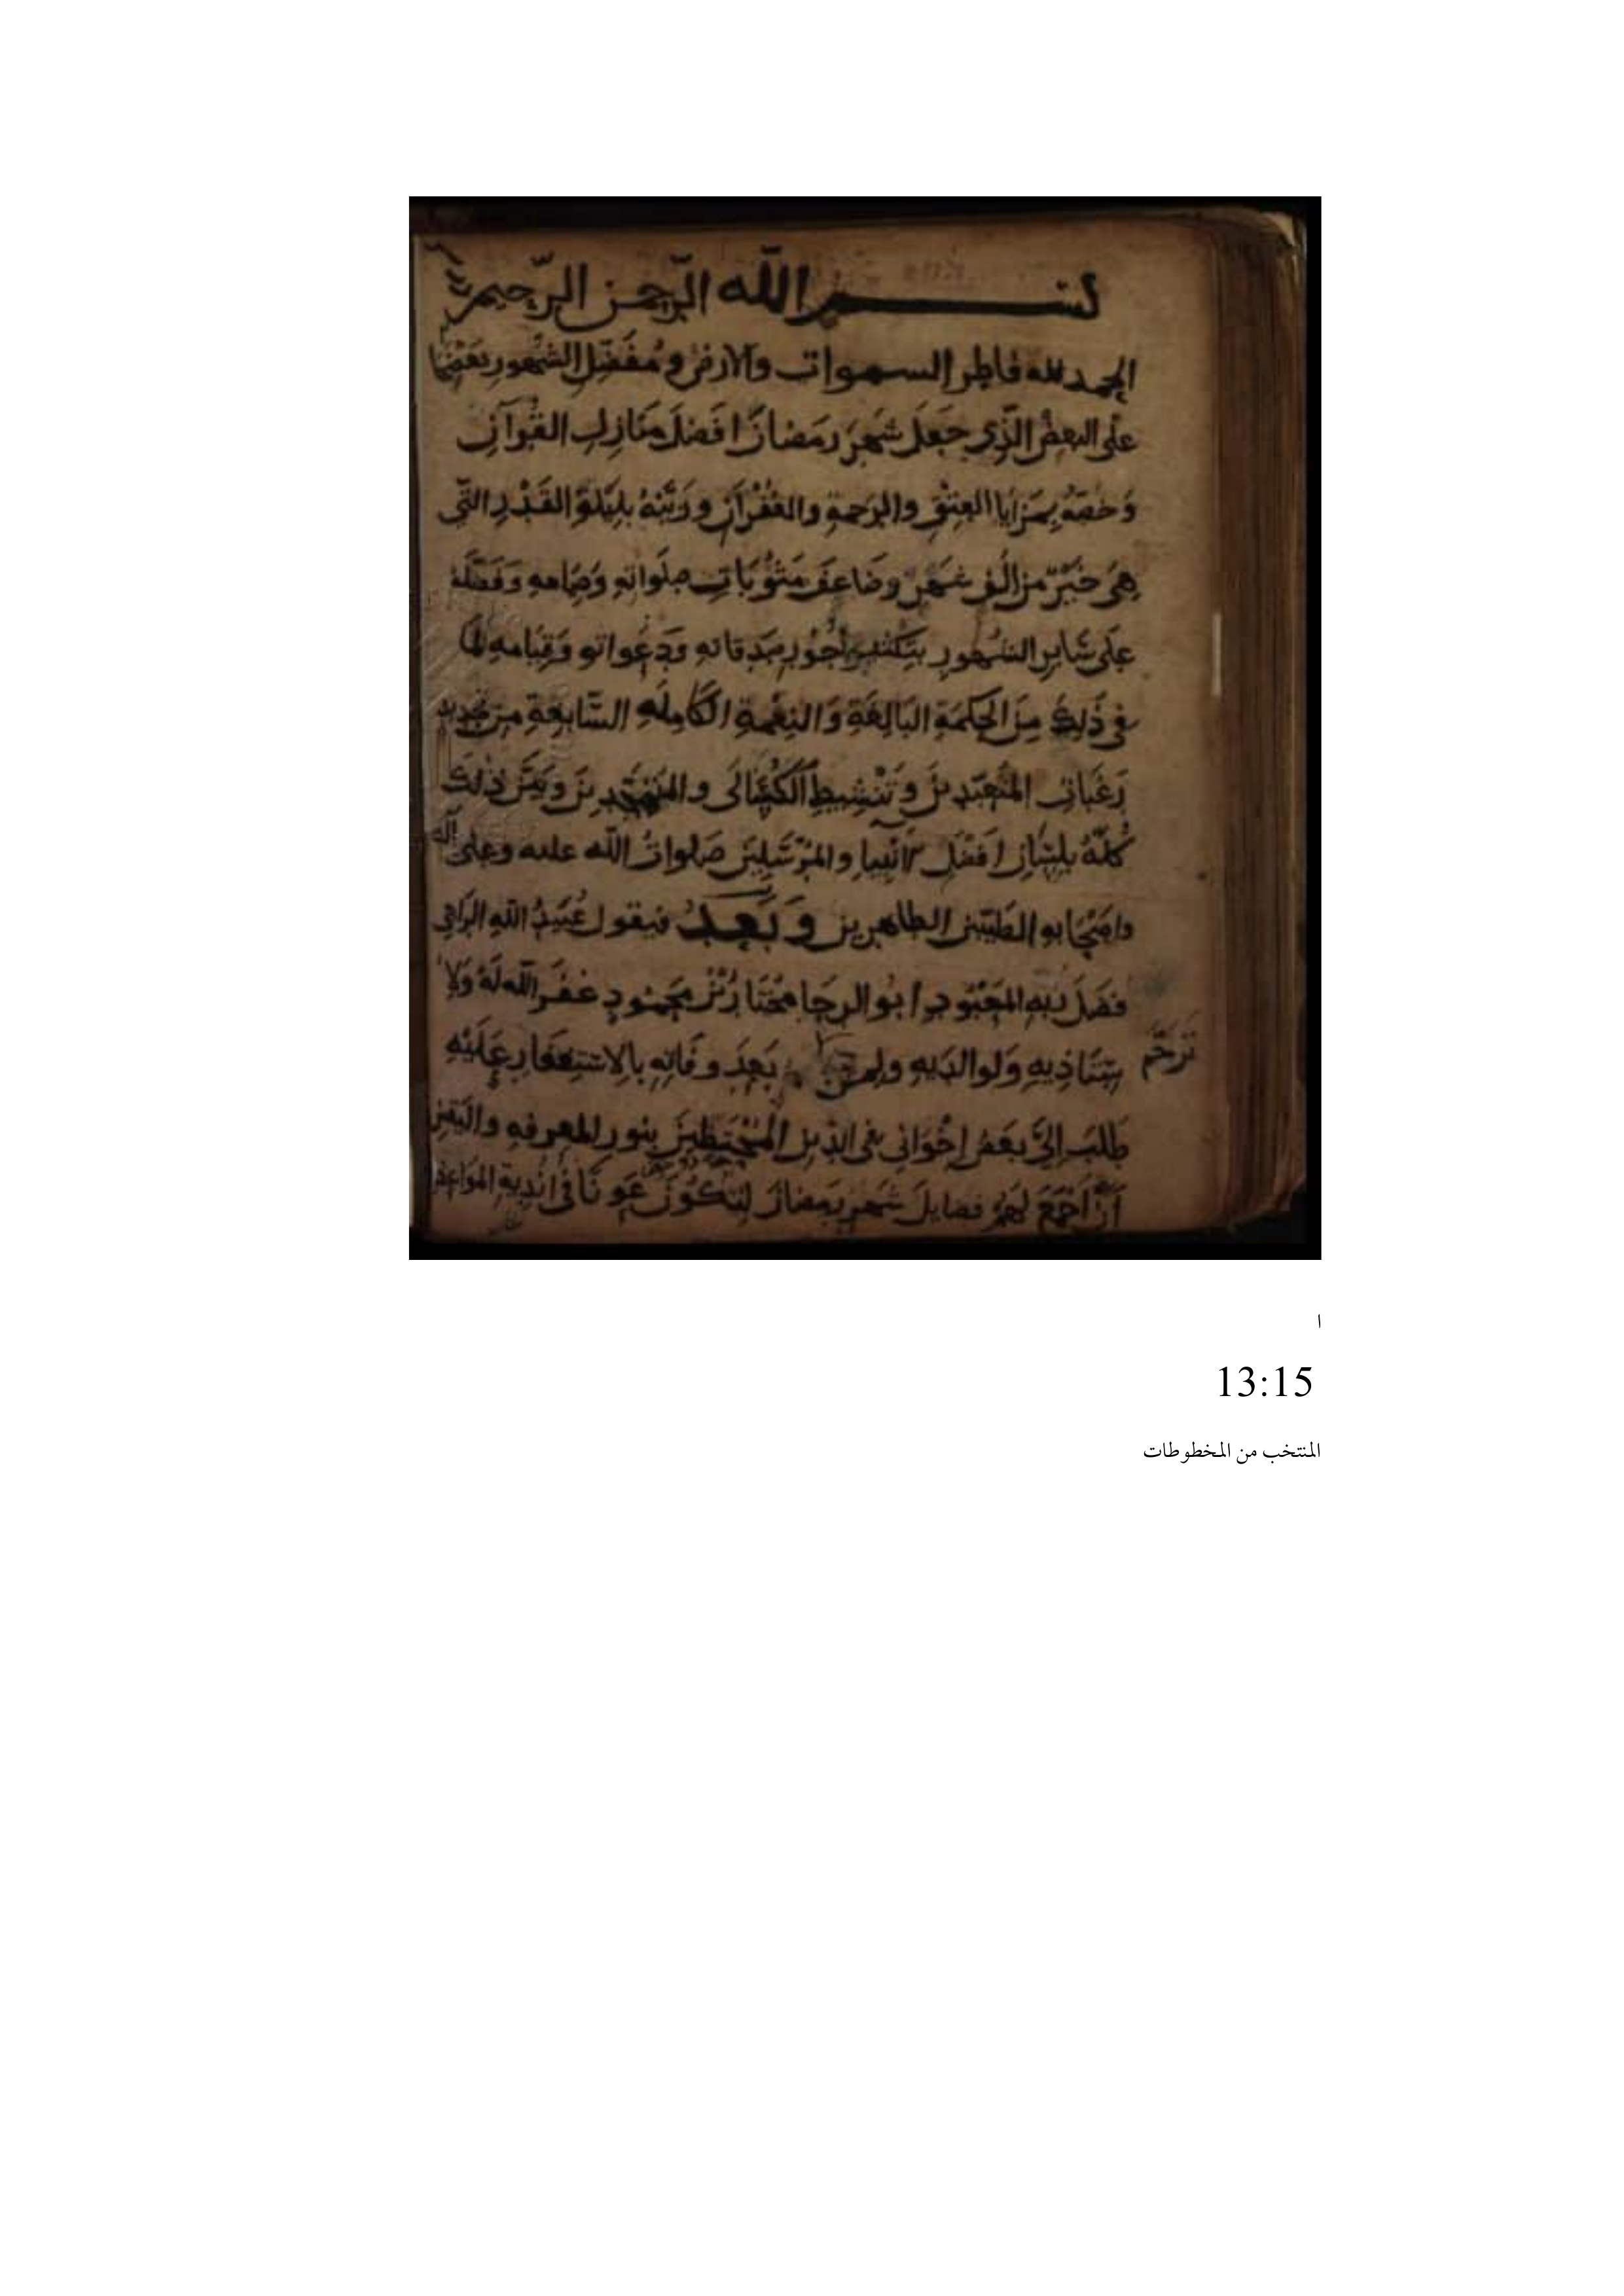 بسم الله الرحمن الرحيم
الحمد لله فاطر السموات والارض ومُفَضِّلِ الشهور بَعْضِهَا
على البعض الَّذِي جَعَلَ شَهْرَ رَمَضَانَ اَفضَلَ مَنَازِلِ القُرآنِ
وَخَصَّهُ بِمَزَايا العِتْقِ والرَحمةِ والغُفْرَانِ وزَيَّنَهُ بِلَيْلَةِ القَدْرِ التي
هِىَ خَيْرٌ من اَلْفِ شَهْرٍ وضَاعَفَ مَثُوبَاتِ صلَواتِهِ وَصِيامهِ وَفَضَّلَهُ
على سَايرِ الشهُورِ اُجُورِ صَدقاتهِ وَدَعَواتهِ وَقِيَامهِ لما
فى ذٰلِكَ مِنَ الحِكمَةِ البَالِغَةِ وَالنِعْمةِ الكَامِلَةِ السَّابِغَةِ مِن
رَغَباتِ المُتَعَبِّدِينَ وتَنْشِيطِ الكُسَالَى و ذلك
كُلَّهُ بلِسَانِ اَفضَلِ الانبيا والمُرْسَلِينَ صَلواتُ الله عليه وعلى آله
واصْحَابهِ الطَيّبين الطاهرين وَبَعد فيقول عُبَيْدُ اللهِ الرَاجى
فضلَ ربِهِ المَعْبُودِ ابو الرجا مُختَار بْنُ مَحمُودٍ غفَرَ اللّه لَهُ وَلِاُ
سْتَاذِيهِ وَلوالدَيهِ ولمن تَرَحَّم بَعدَ وفَاتِهِ بالاستِغفَارِ عَلَيْهِ
طَلَبَ اِلَىَّ بَعضُ اِخْوَانِي فى الدِينِ بنورِ المعرفهِ واليَقينِ
اَنْ اَجْمَعَ لَهُمْ فضايلَ شَهرِ رمضانَ لِتَكُونَ عَونًا فى اَنْدِيةِ المَوَاعِظِ
ا
13:15
المنتخب من المخطوطات